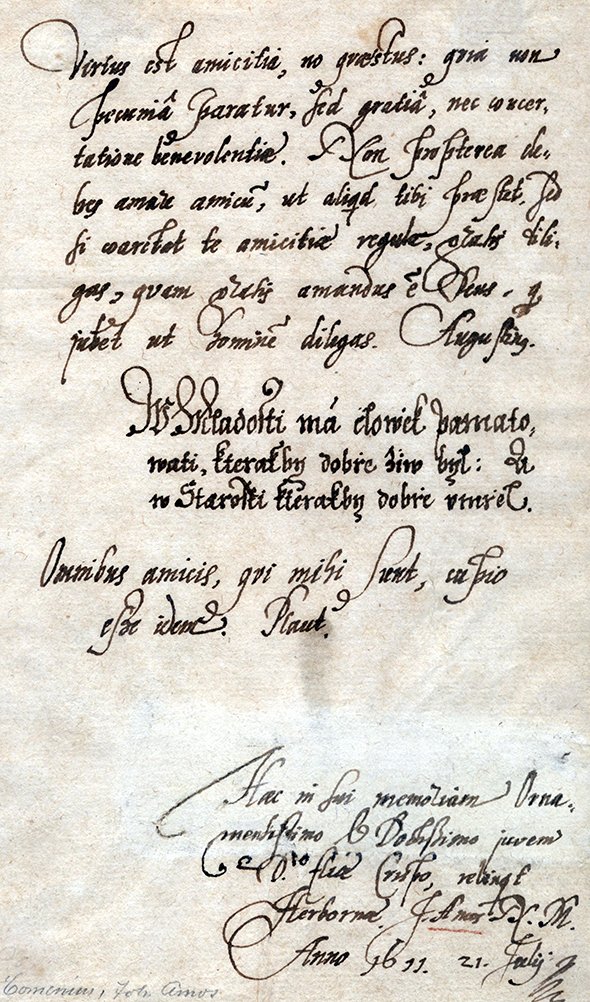 Virtus est amicitia, nō quæstus: qvia non
pecuniâ paratur, sed gratiâ, nec concer-
tatione benevolentiæ. Non propterea de-
bes amare amicū, ut aliqd tibj præstet, sed
si
te amicitiæ regulæ, dili-
gas, qvam amandus ē Deus, q
jubet ut hominē diligas. Augustin9.
W Mladosti má cłowěk pamato-
wati, kterakby dobře žiw byl: A
w Starosti kterakby dobře vmřel.
Omnibus amicis, qvi mihi sunt, cupio
esse idem. Plaut9.
Hæc in sui memoriam Orna-
mentissimo & Doctissimo juvem
D.
relinqt
Herbornæ. J. Amos N. M.
Anno 1611. 21. Julij
Comenius, Joh. Amos